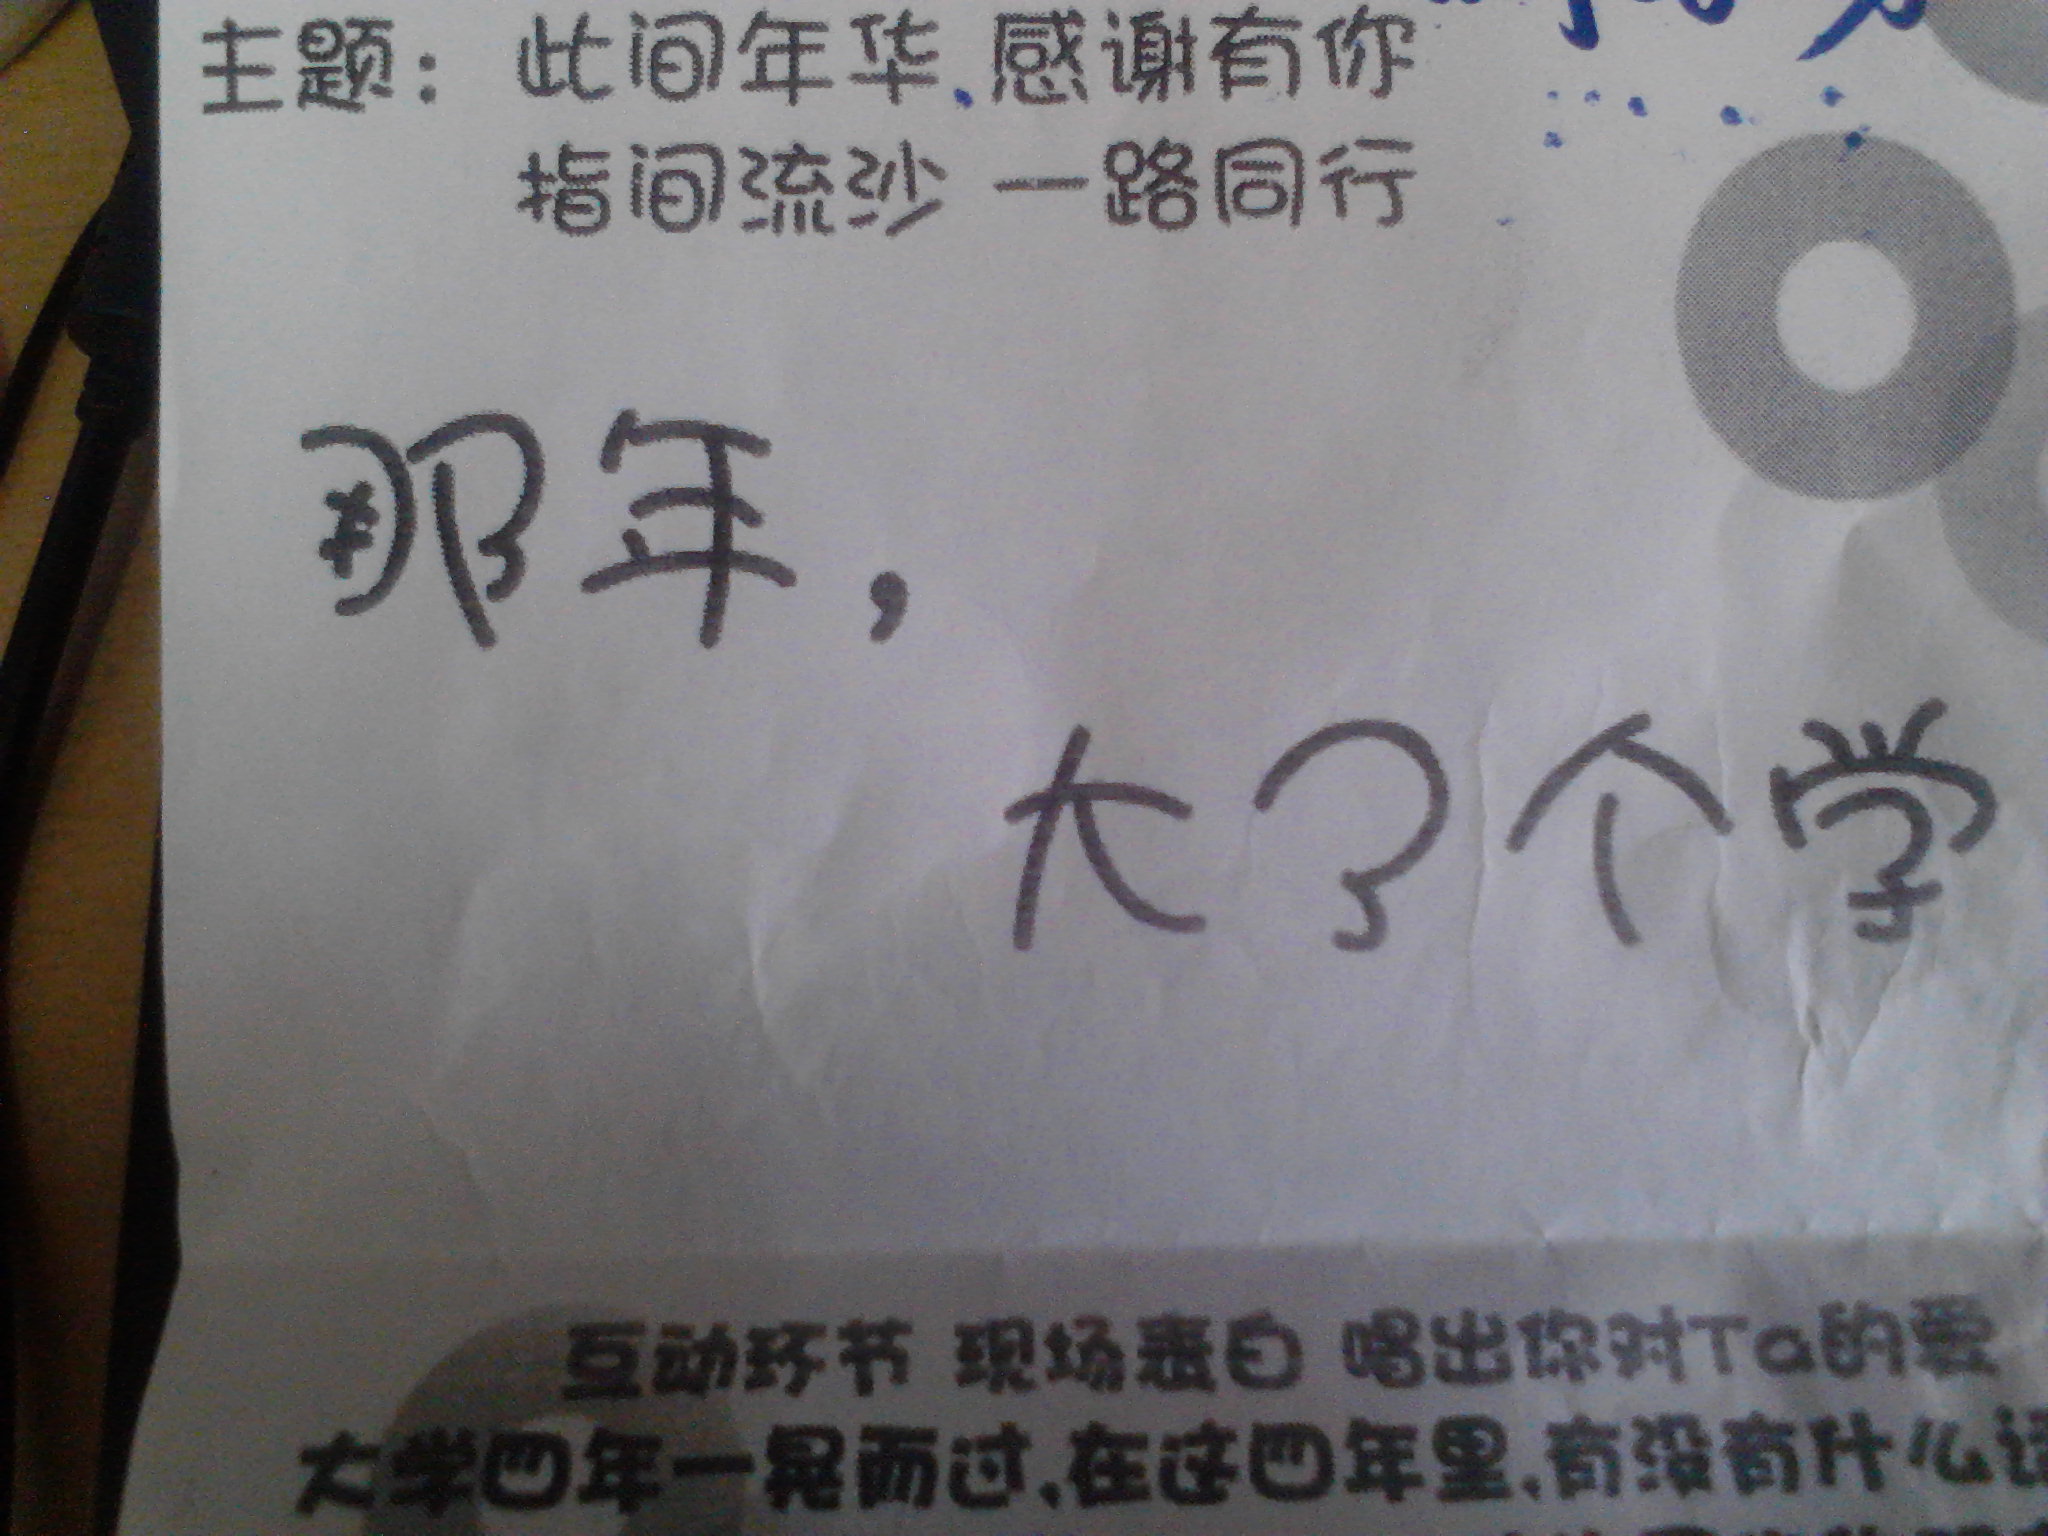 主题：此间年华 感谢有你
指间流沙 一路同行
那年，
大了个学
互动环节 现场表白 唱出你对Ta的爱
大学四年一晃而过，在这四年里，有没有什么话